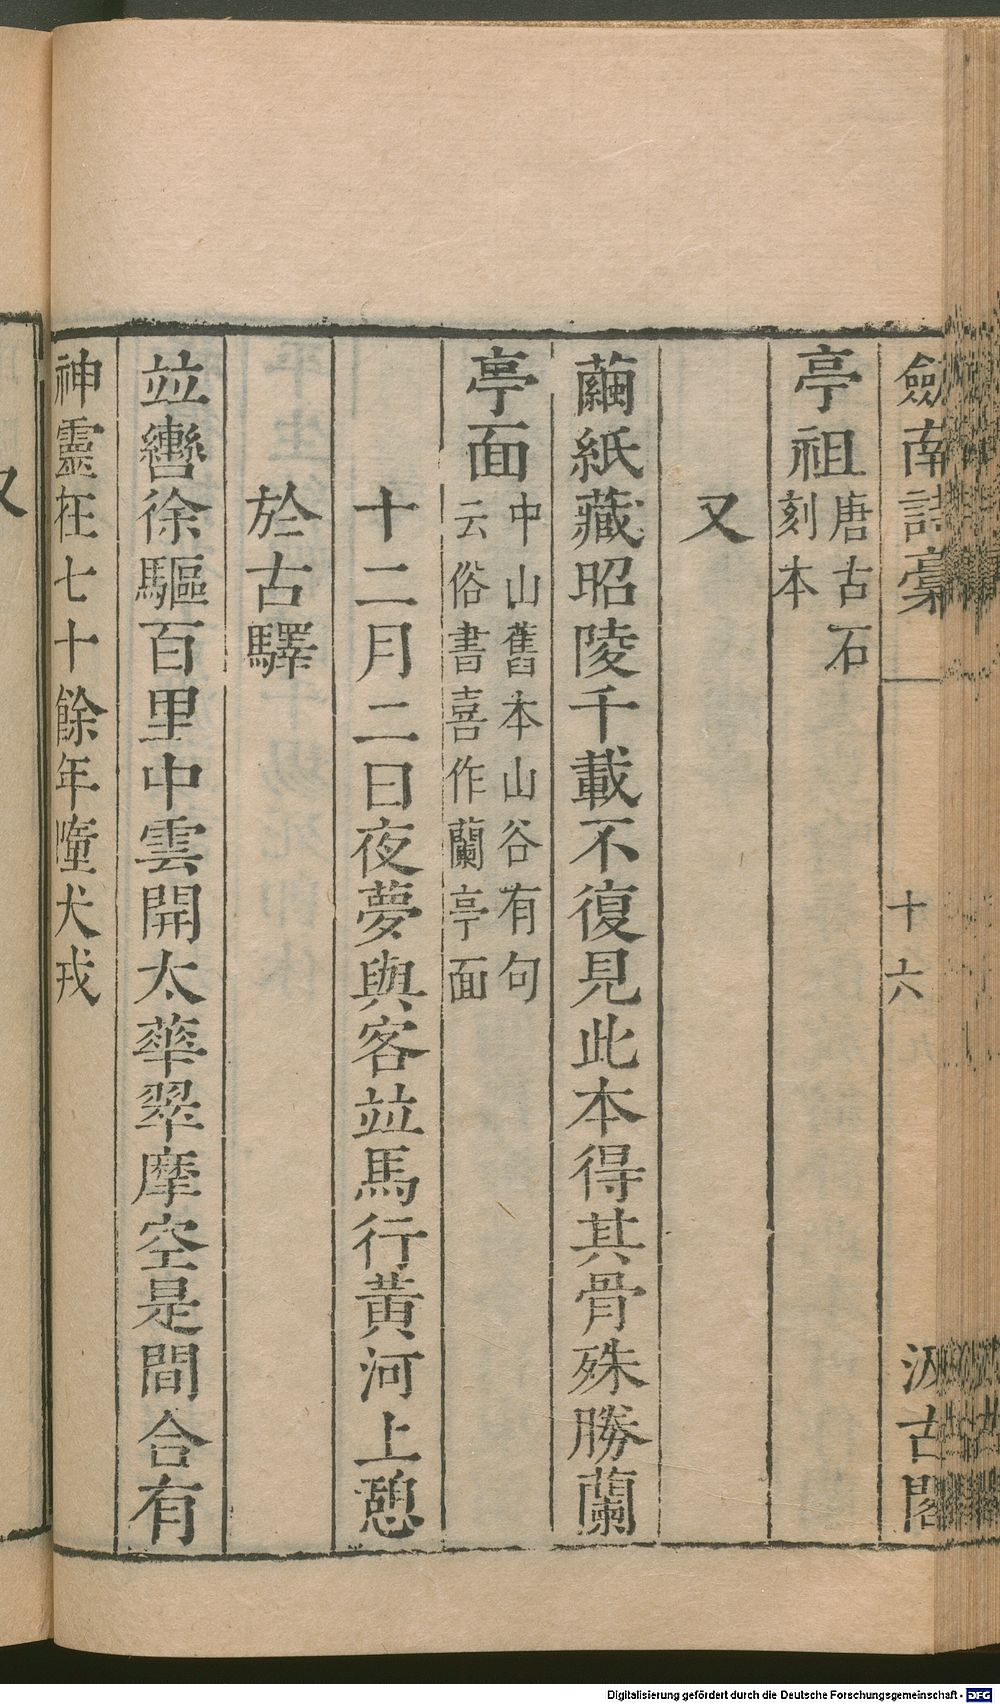 劍南詩稾 十六 汲古閣
亭祖唐古石刻本
又
繭紙藏昭陵千載不復見此本得其骨殊勝蘭
亭面中山舊本山谷有句云俗書喜作蘭亭面
十二月二日夜夢與客並馬行黃河上憩
於古驛
並轡徐驅百里中雲開太華翠摩空是間合有
神靈在七十餘年噇犬戎
又
Digitalisierung gefördert durch die Deutsche Forschungsgemeinschaft - DFG